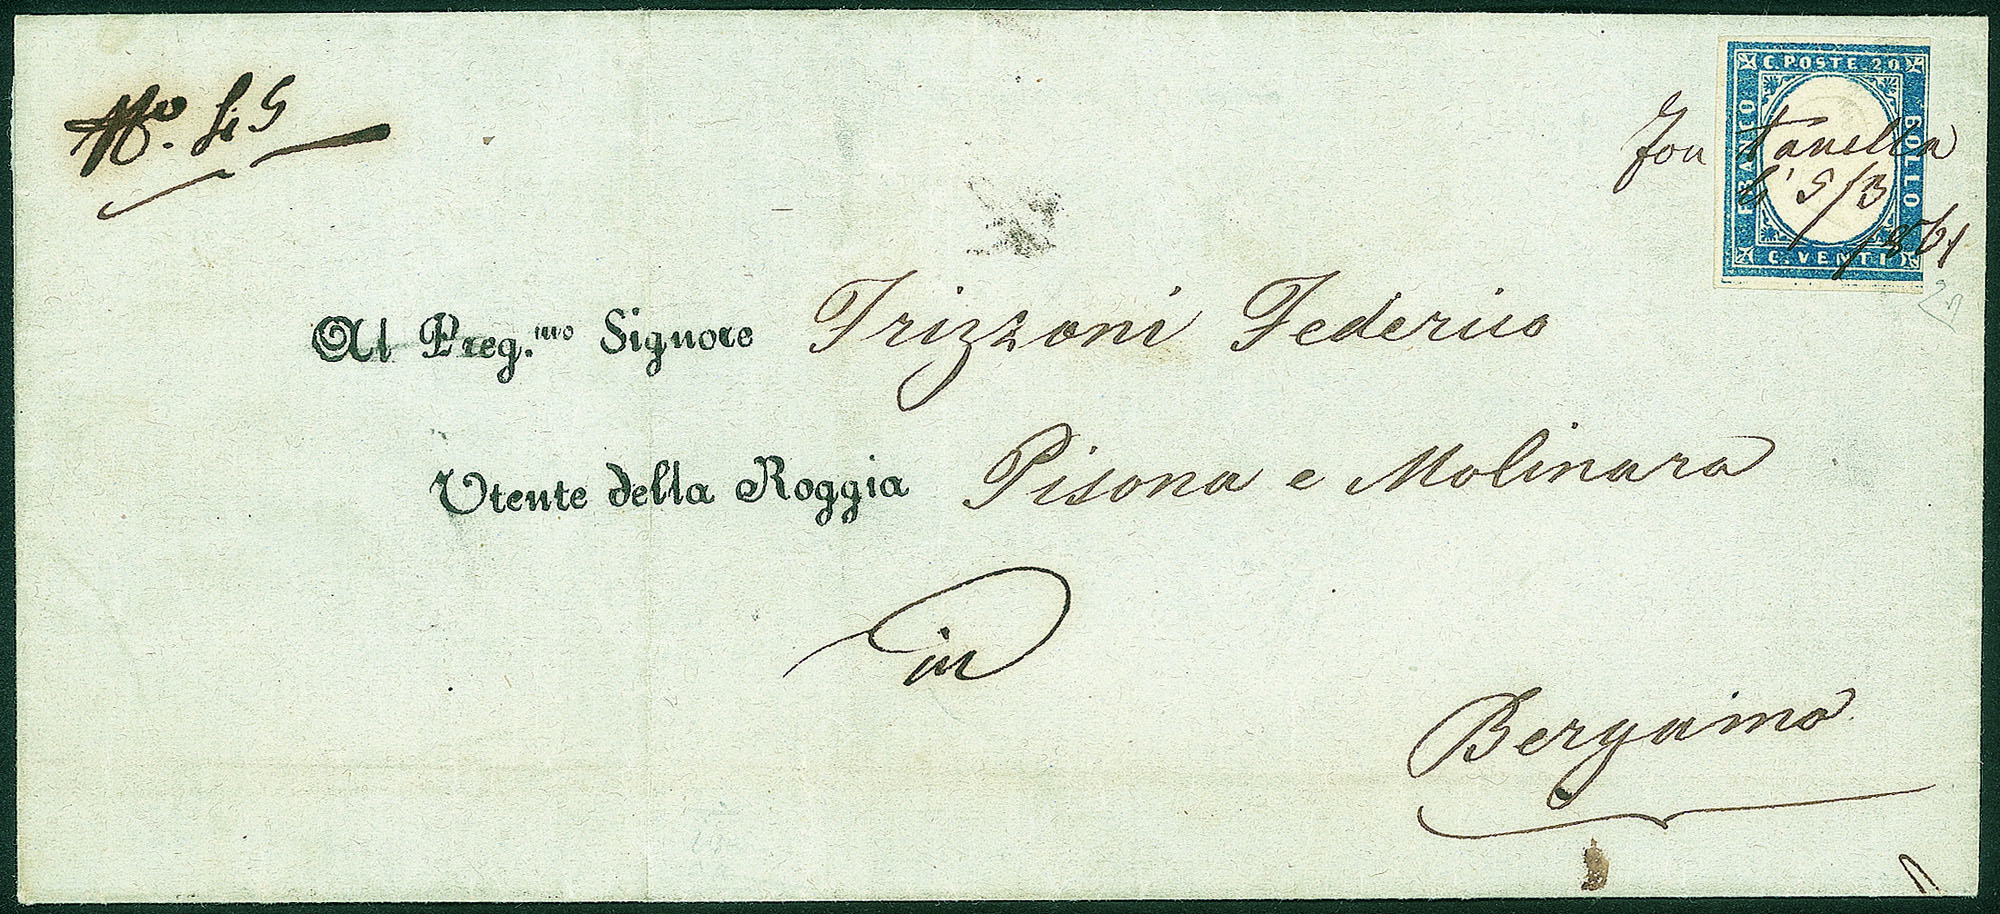 C. POSTE. 20
FRANCO
BOLLO
C. VENTI
Fontanella
li 5/3
1861
Al Preg.mo Signore Frizzoni Federico
Utente della Roggia Pisona e Molinara
in
Bergamo